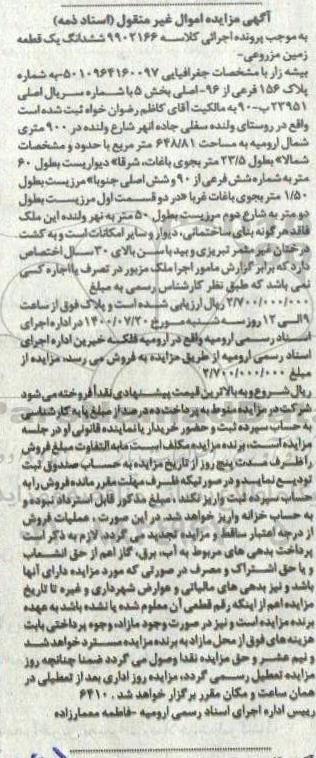 آگهی مزایده اموال غیر منقول (اسناد ذمه)
به موجب پرونده اجرائی کلاسه ۹۹۰۲۱۶۶ ششدانگ یک قطعه
زمین مزروعی-
بیشه زار با مشخصات جغرافیایی ۵۰۱۰۹۶۴۱۶۰۰۹۷-به شماره
پلاک ۱۵۶ فرعی از ۹۶-اصلی بخش ۵ با شماره سریال اصلی
۲۲۹۵۱ب-۹۰ به مالکیت آقای کاظم رضوان خواه ثبت شده است
واقع در روستای ولنده سفلی جاده انهر شارع ولنده در ۹۰۰ متری
شمال ارومیه به مساحت ۶۴۸/۸۱ متر مربع با حدود و مشخصات
شمالا» بطول ۲۳/۵ متر بجوی باغات، شرقا» دیواریست بطول ۶۰
متر به شماره شش فرعی از ۹۰ و شش اصلی جنوبا» مرزیست بطول
۱/۵۰ متر بجوی باغات غربا» در دو قسمت اول مرزیست بطول
دو متر به شارع دوم مرزیست بطول ۵۰ متر به نهر ولنده این ملک
فاقد هرگونه بنای ساختمانی، دیوار و سایر امکانات است و به کشت
درختان غیر مثمر تبریزی و بید با سن بالای ۳۰ سال اختصاص
دارد که برابر گزارش مامور اجرا ملک مزبور در تصرف یا اجاره کسی
نمی باشد که طبق نظر کارشناس رسمی به مبلغ
۲/۷۰۰/۰۰۰/۰۰۰ ریال ارزیابی شده است و پلاک فوق از ساعت
۹ الی ۱۲ روز سه شنبه مورخ ۱۴۰۰/۰۷/۲۰ در اداره اجرای
اسناد رسمی ارومیه واقع در ارومیه فلکه خیرین اداره اجرای
اسناد رسمی ارومیه از طریق مزایده به فروش می رسد، مزایده از
مبلغ ۲/۷۰۰/۰۰۰/۰۰۰
ریال شروع و به بالاترین قیمت پیشنهادی نقدا فروخته می شود
شرکت در مزایده منوط به پرداخت ده درصد از مبلغ پایه کارشناسی
به حساب سپرده ثبت و حضور خریدار یا نماینده قانونی او در جلسه
مزایده است، برنده مزایده مکلف است مابه التفاوت مبلغ فروش
را ظرف مدت پنج روز از تاریخ مزایده به حساب صندوق ثبت
تودیع نماید و در صورتیکه ظرف مهلت مقرر مانده فروش را به
حساب سپرده ثبت واریز نکند، مبلغ مذکور قابل استرداد نبوده و
به حساب خزانه واریز خواهد شد، در این صورت، عملیات فروش
از درجه اعتبار ساقط و مزایده تجدید می گردد. لازم به ذکر است
پرداخت بدهی های مربوط به آب، برق، گاز اعم از حق انشعاب
و یا حق اشتراک و مصرف در صورتی که مورد مزایده دارای آنها
باشد و نیز بدهی های مالیاتی و عوارض شهرداری و غیره تا تاریخ
مزایده اعم از اینکه رقم قطعی آن معلوم شده یا نشده باشد به عهده
برنده مزایده است و نیز در صورت وجود مازاد، وجوه پرداختی بابت
هزینه های فوق از محل مازاد به برنده مزایده مسترد خواهد شد
و نیم عشر و حق مزایده نقدا وصول می گردد ضمنا چنانچه روز
مزایده تعطیل رسمی گردد، مزایده روز اداری بعد از تعطیلی در
همان ساعت و مکان مقرر برگزار خواهد شد. ۶۴۱۰
رییس اداره اجرای اسناد رسمی ارومیه -فاطمه معمارزاده